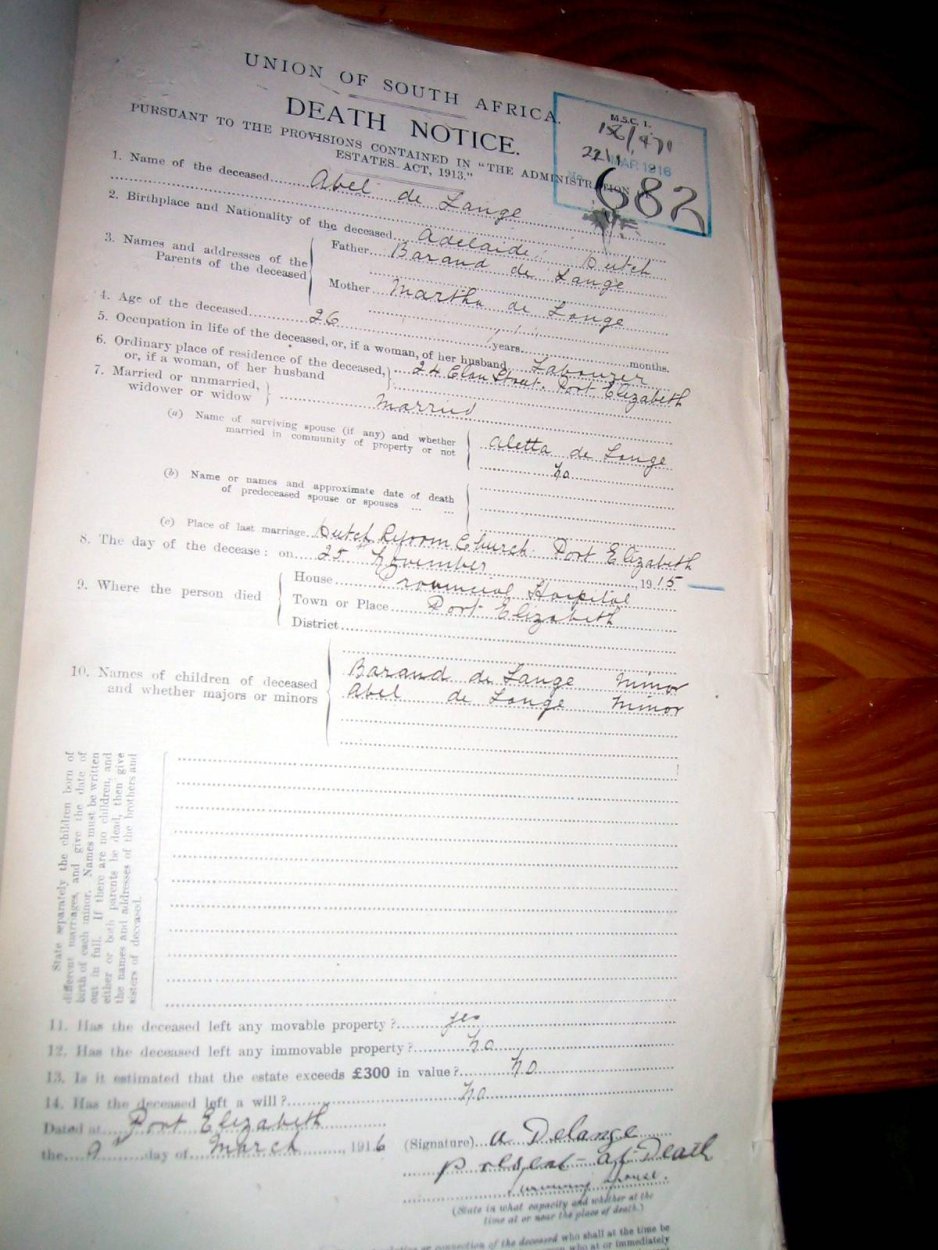 UNION OF SOUTH AFRICA.
DEATH NOTICE.
PURSUANT TO THE PROVISIONS CONTAINED IN "THE ADMINISTRATION
ESTATES ACT, 1913."
M.S.C. 1.
MAR 1916
682
1. Name of the deceased Abel de Lange
2. Birthplace and Nationality of the deceased Adelaide Dutch
3. Names and addresses of the Parents of the deceased
Father Barand de Lange
Mother Martha de Lange
4. Age of the deceased 26 years months.
5. Occupation in life of the deceased, or, if a woman, of her husband Labourer
6. Ordinary place of residence of the deceased,
or, if a woman, of her husband 24 Street. Port Elizabeth
7. Married or unmarried,
widower or widow Married
(a) Name of surviving spouse (if any) and whether
married in community of property or not
Aletta de Lange
no
(b) Name or names and approximate date of death
of predeceased spouse or spouses ... ...
(c) Place of last marriage Dutch Reform Church. Port Elizabeth
8. The day of the decease: on 25 November 1915
9. Where the person died
House Provincial Hospital
Town or Place Port Elizabeth
District
10. Names of children of deceased
and whether majors or minors
Barand de Lange Minor
Abel de Lange Minor
State separately the children born of
different marriages and give the date of
birth of each minor. Names must be written
out in full. If there are no children, and
either or both parents be dead, then give
the names and addresses of the brothers and
sisters of deceased.
11. Has the deceased left any movable property? yes
12. Has the deceased left any immovable property? no
13. Is it estimated that the estate exceeds £300 in value? no
14. Has the deceased left a will? no
Dated at Port Elizabeth
the 9 day of March, 1916
(Signature) A Delange
present at Death
(State in what capacity and whether at the
time at or near the place of death.)
connection of the deceased who shall at the time be
who at or immediately